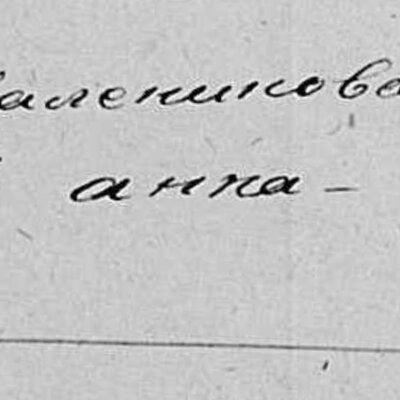 алениково
анна -